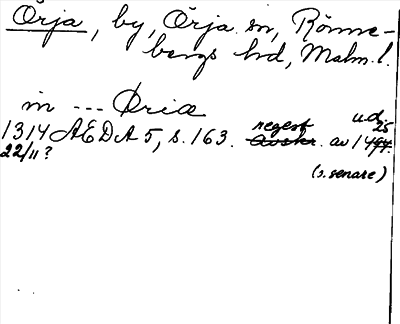 Örja, by, Örja sn, Rönne-
bergs hd, Malm. l.
in --- Øriæ
1314 AEDA 5, s. 163. regest av 1425
22/11?
(s. senare)